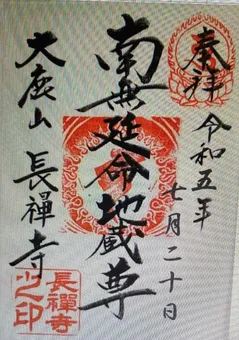 奉拝
令和五年
七月二十日
南無延命地蔵尊
大鹿山 長禅寺
長禪寺
之印